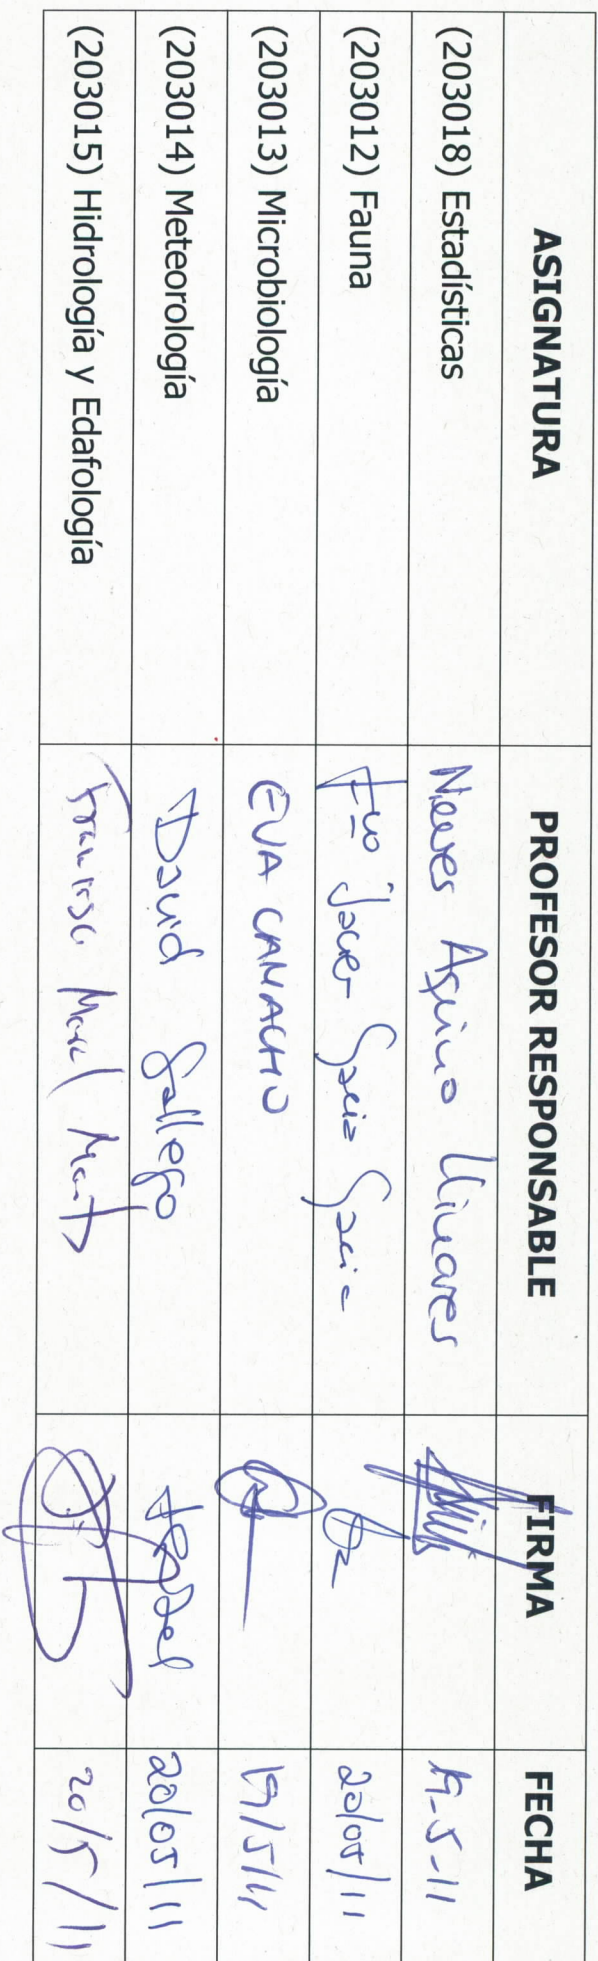 ASIGNATURA PROFESOR RESPONSABLE FIRMA FECHA
(203018) Estadísticas Nieves Aquino Llinares 19-5-11
(203012) Fauna Fco Javier García García 20/05/11
(203013) Microbiología EVA CAMACHO 19/5/11
(203014) Meteorología David Gallego 20/05/11
(203015) Hidrología y Edafología Francisco 20/5/11